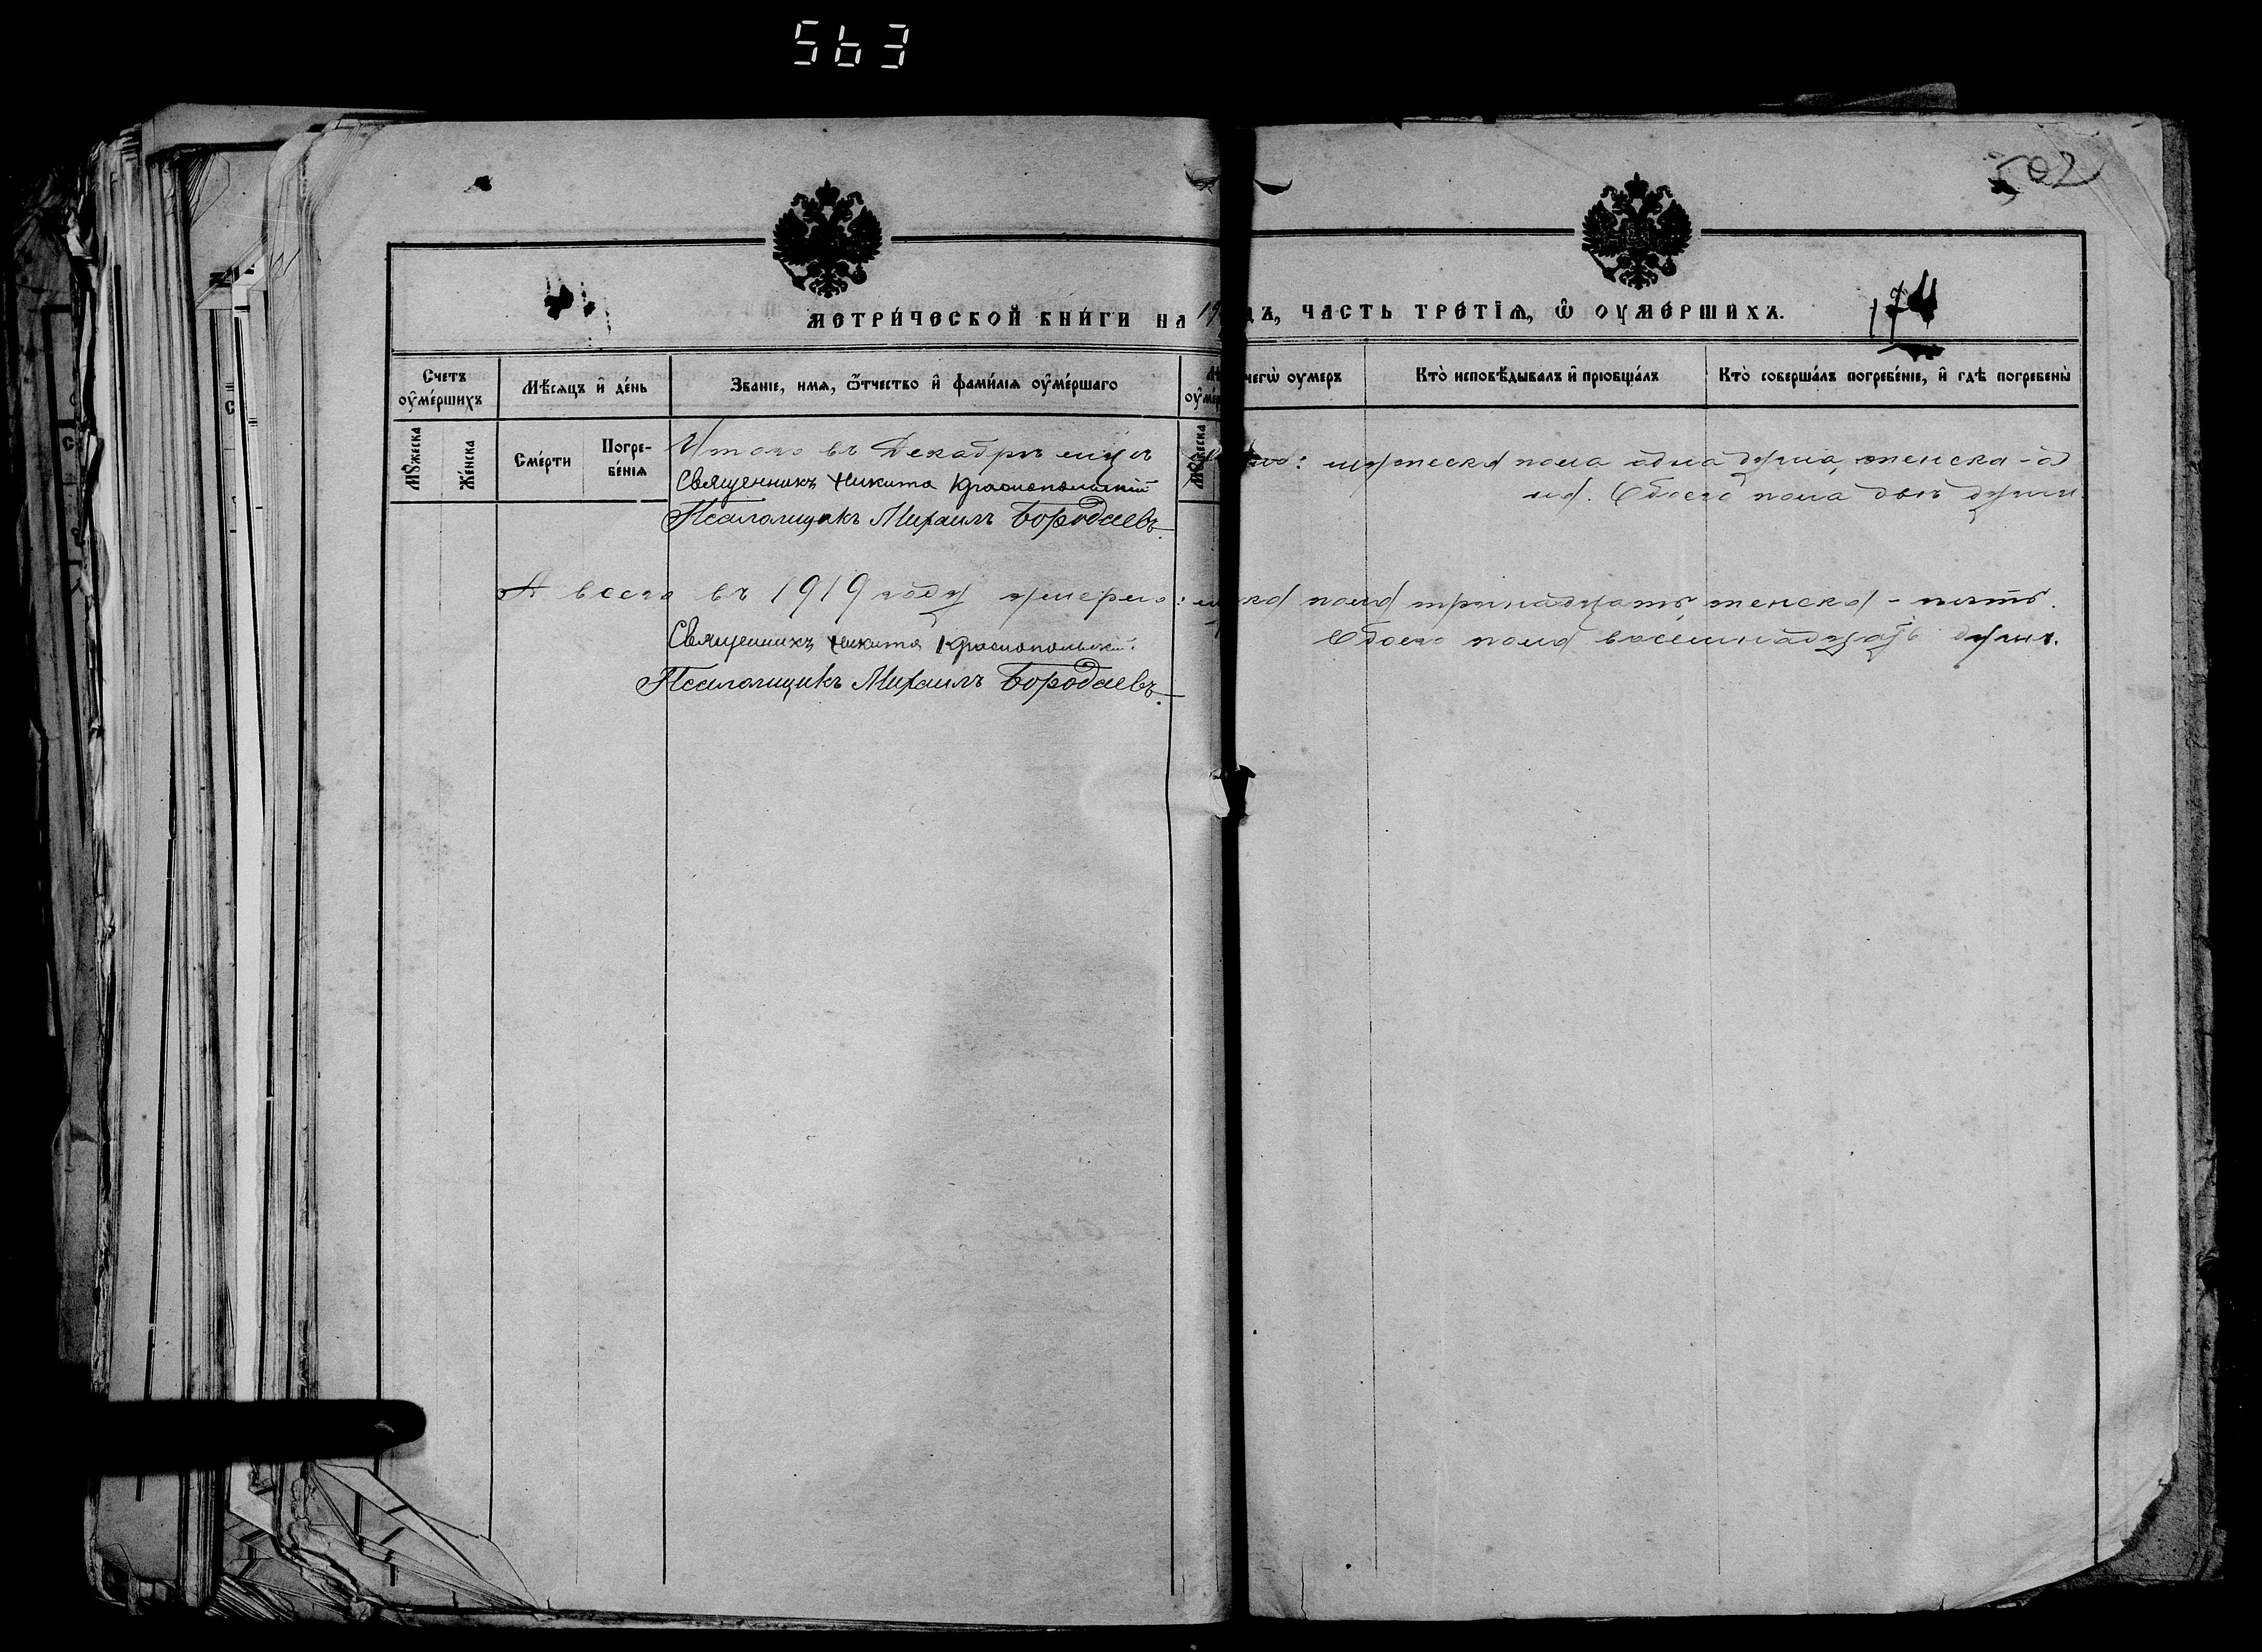 563
502
МЕТРИ́ЧЕСКОЙ КНИ́ГИ НА 19 ДЪ, ЧАСТЬ ТРЕТЇѦ, Ѿ ОУМЕРШИХЪ.
174
Счетъ оу҆ме́ршихъ
Мѣсяцъ и҆ де́нь
Званїе, имѧ, ѻ҆тчество и҆ фами́лїѧ оу҆ме́ршаго
чегѡ̀ оумеръ
Кто̀ исповѣ́дывалъ и҆ прїобща́лъ
Кто̀ соверша́лъ погребе́нїе, и҆ гдѣ̀ погребены̀
Мꙋ́жеска
Же́нска
Сме́рти
Погребе́нїѧ
Мꙋ́жеска
Итого въ Декабрѣ мцѣ : мужеска пола одна душа, женска - од
на. Обоего пола двѣ души.
Священникъ Никита Краснопольскій
Псаломщикъ Михаилъ Бородаевъ.
А всего въ 1919 году умерло: ска пола тринадцать, женска - пять.
Обоего пола восемнадцать душъ.
Священникъ Никита Краснопольскій
Псаломщикъ Михаилъ Бородаевъ.